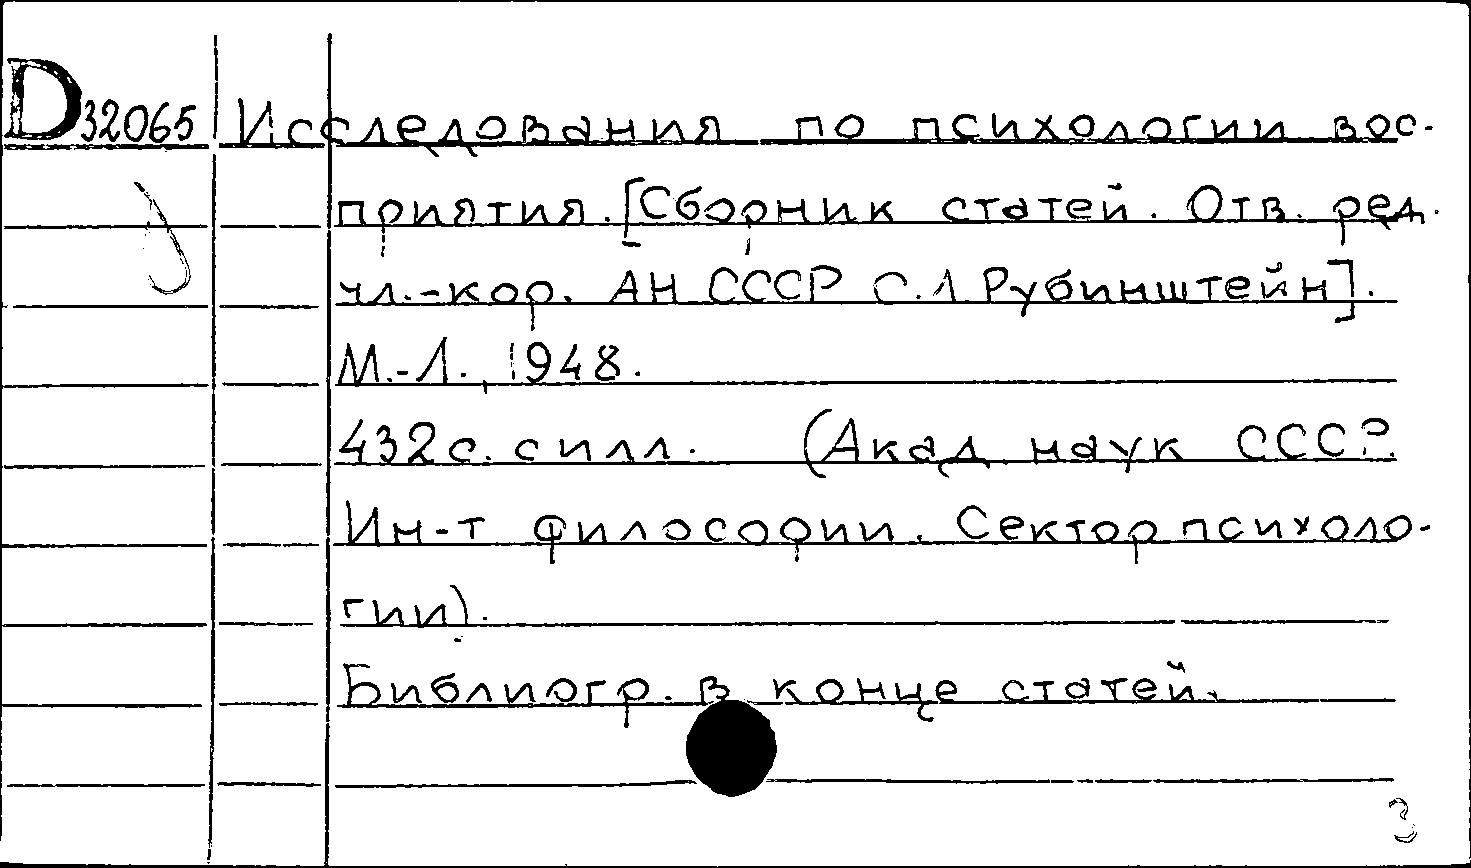 D 32065 Исследования по психологии вос-
приятия. [Сборник статей. Отв. ред.
чл.-кор. АН СССР С.Л.Рубинштейн].
М.-Л., 1948.
432с. с илл. (Акад. наук СССР.
Ин-т философии. Сектор психоло-
гии).
Библиогр. в конце статей.
3